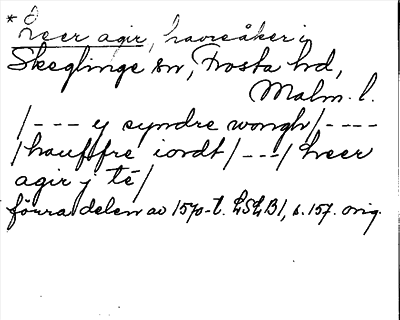 * Hver agir, havreåker i
Skeglinge sn, Frosta hd,
Malm. l.
/--- y syndre wongh/----
/hauffre iordt/---/hver
agir j té/
förra delen av 1570-t. LSLB1, s. 157. orig.